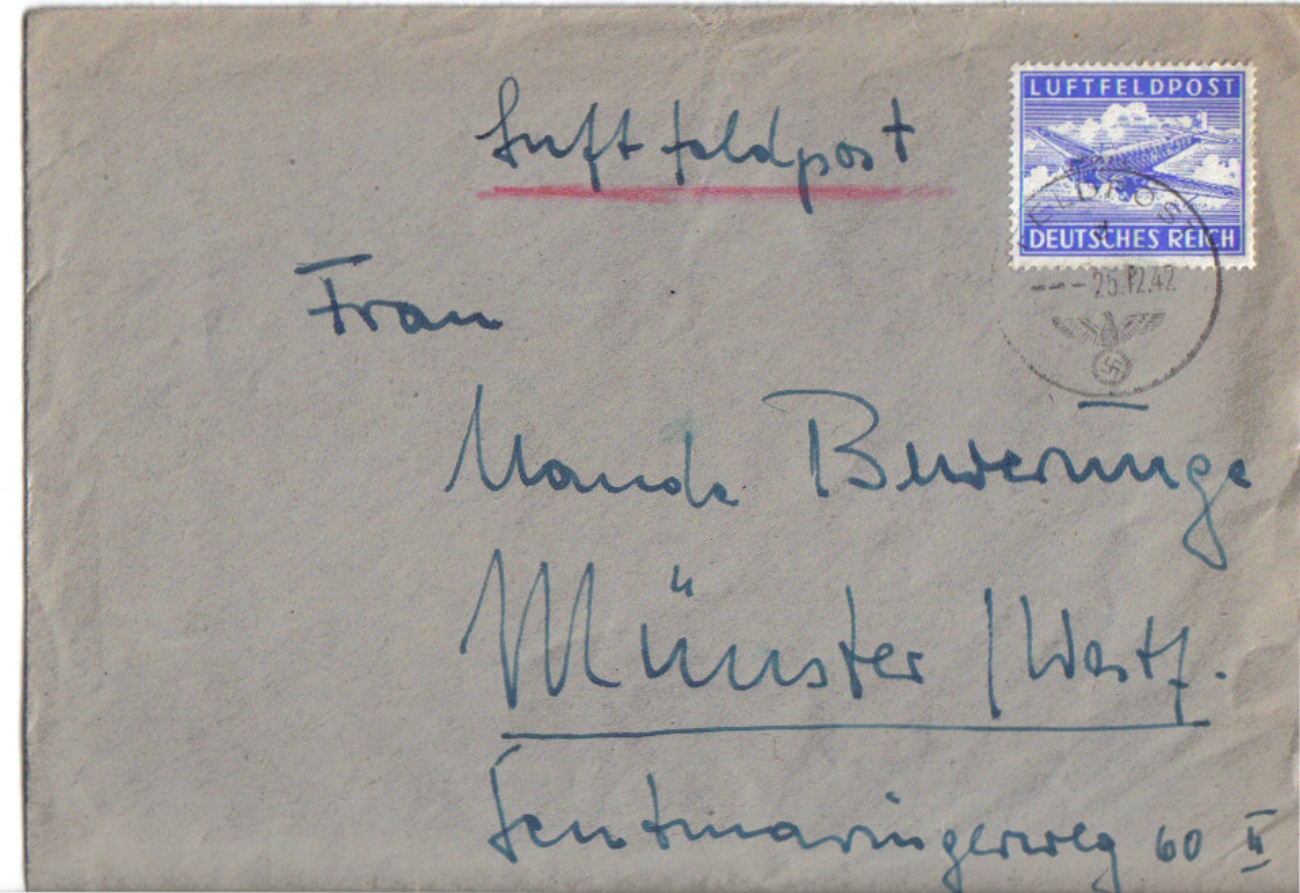 Luftfeldpost
LUFTFELDPOST
DEUTSCHES REICH
FELDPOST
d
---25.12.42
Frau
Maude Beverunge
Münster / Westf.
Sentmaringerweg 60 II